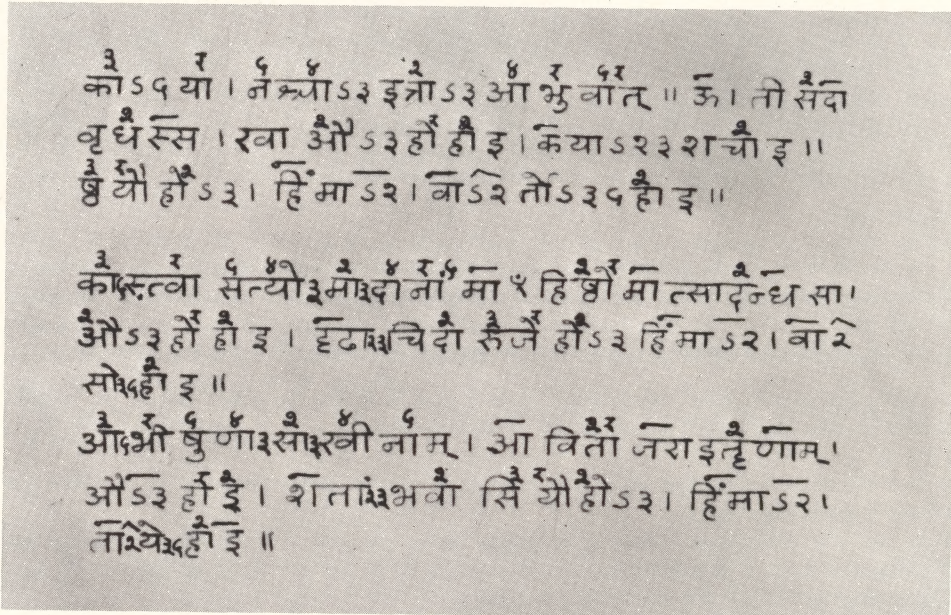 काऽ५ या । न श्चाऽ३ इत्राऽ३ आ भु वात् ॥ ऊ । ती स दा
वृ ध स्स । खा औऽ३ हो हा इ । कयाऽ२३ शचा इ ॥
ष्ठ यौ होऽ३ । हिं माऽ२ । वाऽ२ र्तोऽ३५ हा इ ॥
का५स्त्वा सत्यो३मा३दा नां मा ँ हि ष्ठो मा त्सादन्ध सा ।
औऽ३ हो हा इ । दृढा२३चिदा रु जै होऽ३ हिं माऽ२ । वा २
सो३५हा इ ॥
आ५भी षु णा३सा३खी नाम् । आ वि ता जरा इतॄ णाम् ।
औऽ३ हो इ । शता२३भवा सि यौ होऽ३ । हिं माऽ२ ।
ता२ये३५हा इ ॥